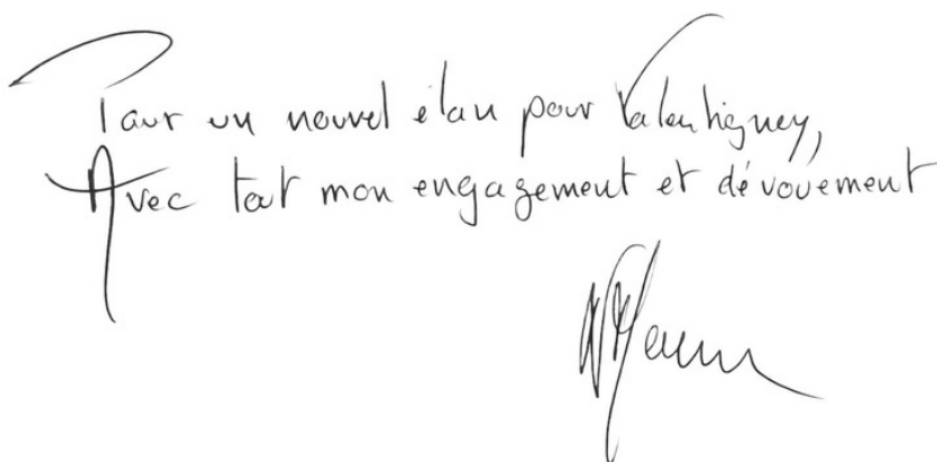 Pour un nouvel élan pour Valentigney,
Avec tout mon engagement et dévouement